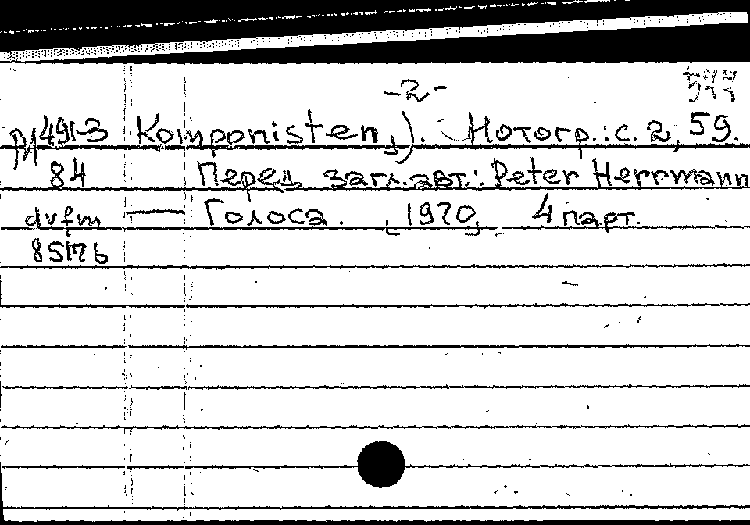 -2-
М 491-3 Komponisten]). Нотогр.: с. 2, 59.
84 Перед загл. авт.: Peter Herrmann
— Голоса. [1970]. 4 парт.